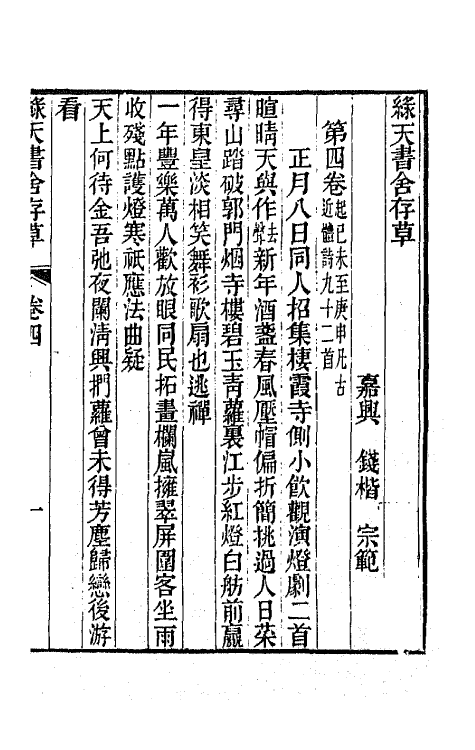 綠天書舍存草
嘉興 錢楷 宗範
第四卷起己未至庚申凡古近體詩九十二首
正月八日同人招集棲霞寺側小飲觀演燈劇二首
暄晴天與作去聲新年酒盞春風壓帽偏折簡挑過人日菜
尋山踏破郭門烟寺樓碧玉靑蘿裏江步紅燈白舫前贏
得東皇淡相笑舞衫歌扇也逃禪
一年豐樂萬人歡放眼同民拓畫欄嵐擁翠屏圍客坐雨
收殘點護燈寒祇應法曲疑
天上何待金吾弛夜闌淸興捫蘿曾未得芳塵歸戀後游
看
綠天書舍存草 卷四 一